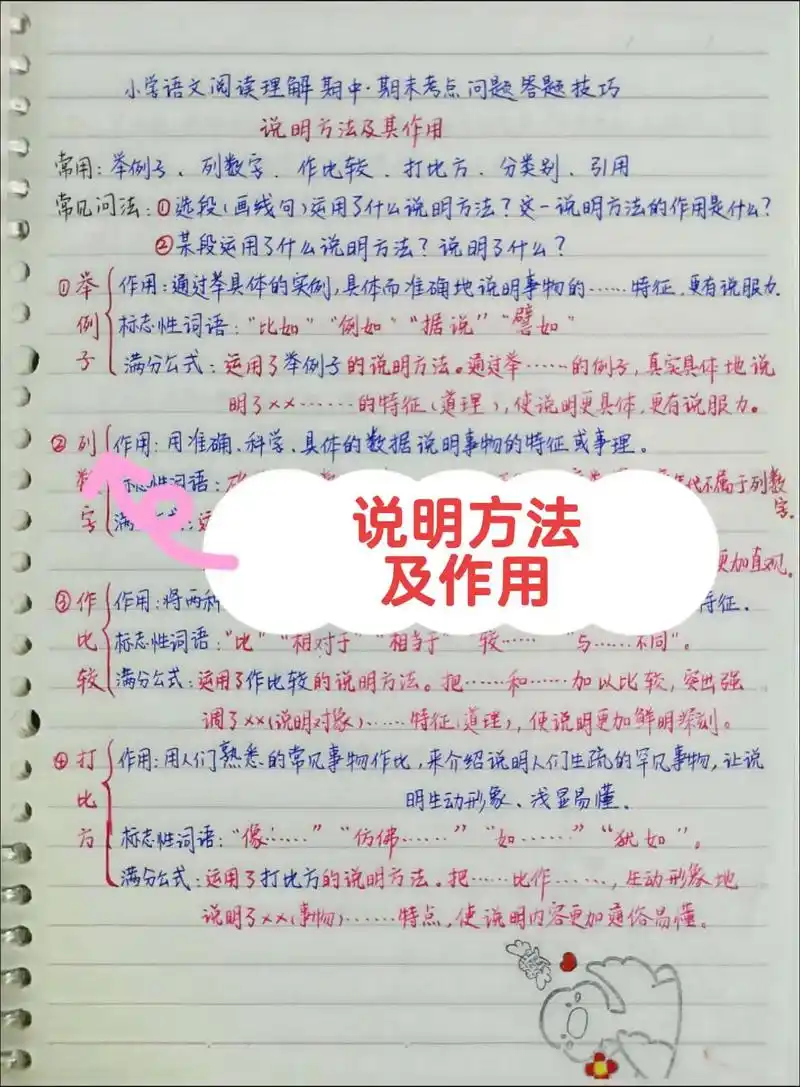 小学语文阅读理解期中·期末考点问题答题技巧
说明方法及其作用
常用：举例子、列数字、作比较、打比方、分类别、引用
常见问法：①选段(画线句)运用了什么说明方法？这一说明方法的作用是什么？
②某段运用了什么说明方法？说明了什么？
①举例子
作用：通过举具体的实例，具体而准确地说明事物的……特征，更有说服力
标志性词语：“比如”“例如”“据说”“譬如”
满分公式：运用了举例子的说明方法。通过举……的例子，真实具体地说
明了××……的特征(道理)，使说明更具体，更有说服力。
②列数字
作用：用准确、科学、具体的数据说明事物的特征或事理。
标志性词语：
年代不属于列数
字。
满
更加直观。
说明方法
及作用
③作比较
作用：将两种
特征.
标志性词语：“比”“相对于”“相当于”较……“与……不同”。
满分公式：运用了作比较的说明方法。把……和……加以比较，突出强
调了××(说明对象)……特征(道理)，使说明更加鲜明深刻。
④打比方
作用：用人们熟悉的常见事物作比，来介绍说明人们生疏的罕见事物，让说
明生动形象、浅显易懂.
标志性词语：“像……”“仿佛……”“如……”“犹如”。
满分公式：运用了打比方的说明方法。把……比作……，生动形象地
说明了××(事物)……特点，使说明内容更加通俗易懂。